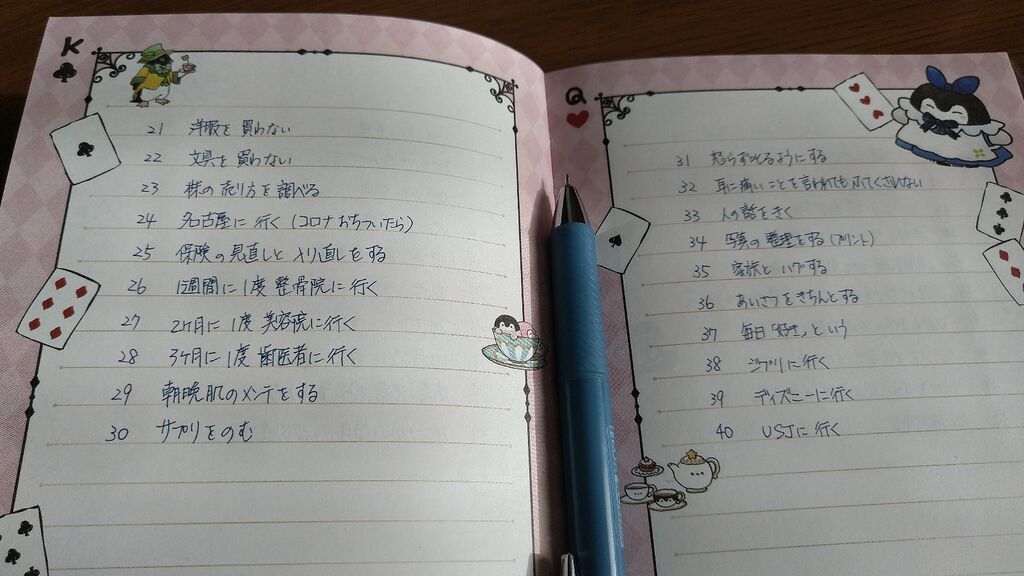 K
21 洋服を買わない
22 文具を買わない
23 株の売り方を調べる
24 名古屋に行く(コロナおちついたら)
25 保険の見直しと 直しをする
26 1週間に1度 整骨院に行く
27 2ヶ月に1度 美容院に行く
28 3ヶ月に1度 歯医者に行く
29 朝晩肌のメンテをする
30 サプリをのむ
Q
31 怒らずいれるようにする
32 耳に痛いことを言われてもふてくされない
33 人の話をきく
34 写真の整理をする(プリント)
35 家族と ハグする
36 あいさつをきちんとする
37 毎日「好き」という
38 ジブリに行く
39 ディズニーに行く
40 USJに行く